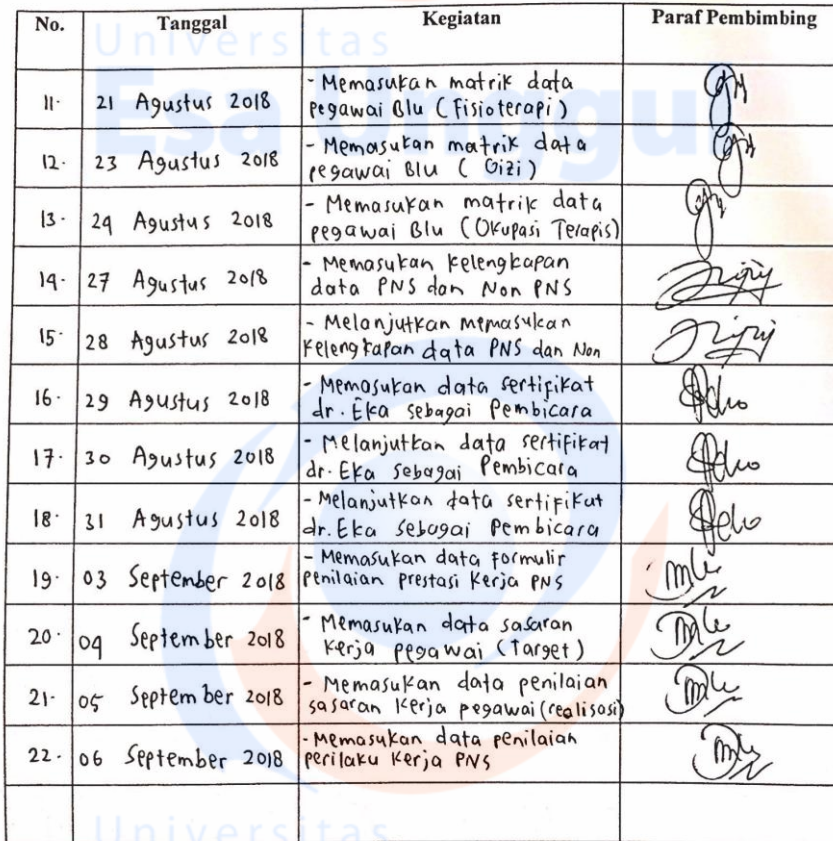 No. Tanggal Kegiatan Paraf Pembimbing
Universitas
Esa Unggul
11. 21 Agustus 2018 - Memasukan matrik data
pegawai Blu (Fisioterapi)
12. 23 Agustus 2018 - Memasukan matrik data
pegawai Blu ( Gizi )
13. 24 Agustus 2018 - Memasukan matrik data
pegawai Blu (Okupasi Terapis)
14. 27 Agustus 2018 - Memasukan kelengkapan
data PNS dan Non PNS
15. 28 Agustus 2018 - Melanjutkan memasukan
kelengkapan data PNS dan Non
16. 29 Agustus 2018 - Memasukan data sertifikat
dr. Eka sebagai Pembicara
17. 30 Agustus 2018 - Melanjutkan data sertifikat
dr. Eka sebagai Pembicara
18. 31 Agustus 2018 - Melanjutkan data sertifikat
dr. Eka sebagai Pembicara
19. 03 September 2018 - Memasukan data formulir
penilaian prestasi kerja PNS
20. 04 September 2018 - Memasukan data sasaran
kerja pegawai (Target)
21. 05 September 2018 - Memasukan data penilaian
sasaran kerja pegawai (realisasi)
22. 06 September 2018 - Memasukan data penilaian
perilaku kerja PNS
Universitas